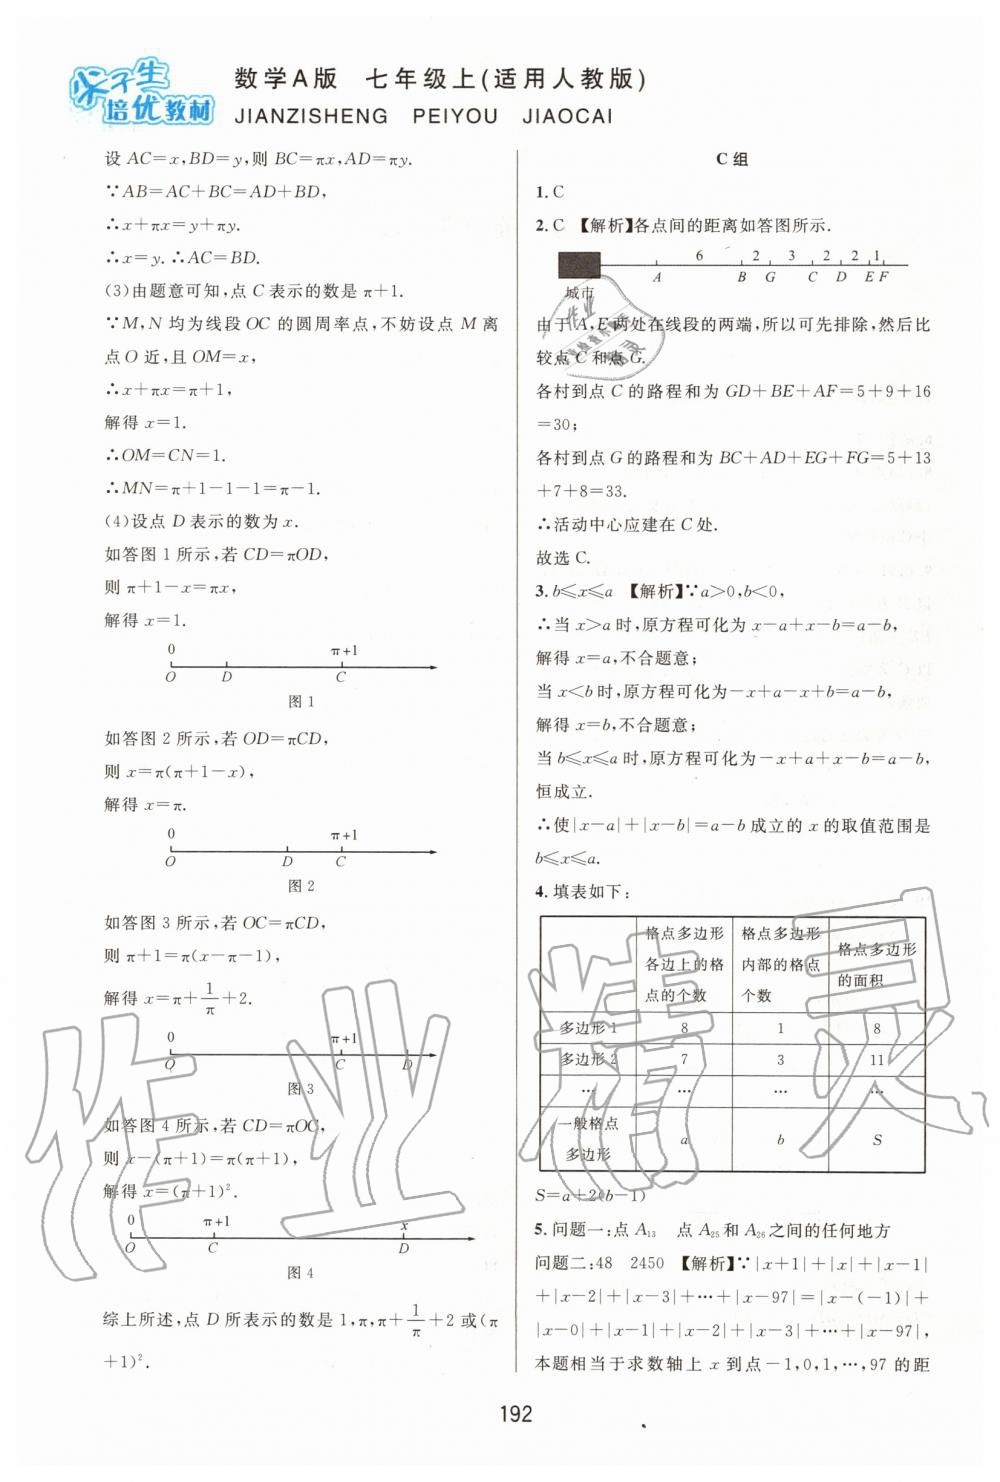 尖子生
培优教材
数学A版 七年级上(适用人教版)
JIANZISHENG PEIYOU JIAOCAI
设 AC=x,BD=y,则 BC=πx,AD=πy.
∵AB=AC+BC=AD+BD,
∴x+πx=y+πy.
∴x=y.∴AC=BD.
(3)由题意可知,点 C 表示的数是 π+1.
∵M,N 均为线段 OC 的圆周率点,不妨设点 M 离
点 O 近,且 OM=x,
∴x+πx=π+1,
解得 x=1.
∴OM=CN=1.
∴MN=π+1-1-1=π-1.
(4)设点 D 表示的数为 x.
如答图 1 所示,若 CD=πOD,
则 π+1-x=πx,
解得 x=1.
0 π+1
O D C
图 1
如答图 2 所示,若 OD=πCD,
则 x=π(π+1-x),
解得 x=π.
0 π+1
O D C
图 2
如答图 3 所示,若 OC=πCD,
则 π+1=π(x-π-1),
解得 x=π+1/π+2.
0 π+1
O C D
图 3
如答图 4 所示,若 CD=πOC,
则 x-(π+1)=π(π+1),
解得 x=(π+1)².
0 π+1 x
O C D
图 4
综上所述,点 D 所表示的数是 1,π,π+1/π+2 或(π
+1)².
C 组
1. C
2. C 【解析】各点间的距离如答图所示.
6 2 3 2 2 1
A B G C D E F
城市
由于 A,E 两处在线段的两端,所以可先排除,然后比
较点 C 和点 G.
各村到点 C 的路程和为 GD+BE+AF=5+9+16
=30;
各村到点 G 的路程和为 BC+AD+EG+FG=5+13
+7+8=33.
∴活动中心应建在 C 处.
故选 C.
3. b≤x≤a 【解析】∵a>0,b<0,
∴当 x>a 时,原方程可化为 x-a+x-b=a-b,
解得 x=a,不合题意;
当 x<b 时,原方程可化为-x+a-x+b=a-b,
解得 x=b,不合题意;
当 b≤x≤a 时,原方程可化为-x+a+x-b=a-b,
恒成立.
∴使|x-a|+|x-b|=a-b 成立的 x 的取值范围是
b≤x≤a.
4. 填表如下:
格点多边形各边上的格点的个数 格点多边形内部的格点个数 格点多边形的面积
多边形 1 8 1 8
多边形 2 7 3 11
… … … …
一般格点多边形 a b S
S=a+2(b-1)
5. 问题一:点 A₁₃ 点 A₂₅ 和 A₂₆ 之间的任何地方
问题二:48 2450 【解析】∵|x+1|+|x|+|x-1|
+|x-2|+|x-3|+…+|x-97|=|x-(-1)|+
|x-0|+|x-1|+|x-2|+|x-3|+…+|x-97|,
本题相当于求数轴上 x 到点-1,0,1,…,97 的距
192
作业精灵